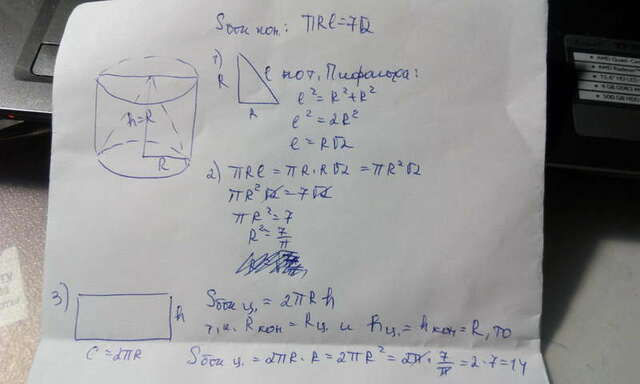 Sбок кон: πRl=7√2
1)
R
l
R
по т. Пифагора:
l² = R²+R²
l² = 2R²
l = R√2
h=R
R
2) πRl = πR·R√2 = πR²√2
πR²√2 = 7√2
πR² = 7
R² = 7/π
3)
h
C = 2πR
Sбок ц. = 2πRh
т.к. Rкон = Rц. и hц. = hкон = R, то
Sбок ц. = 2πR·R = 2πR² = 2π·7/π = 2·7 = 14